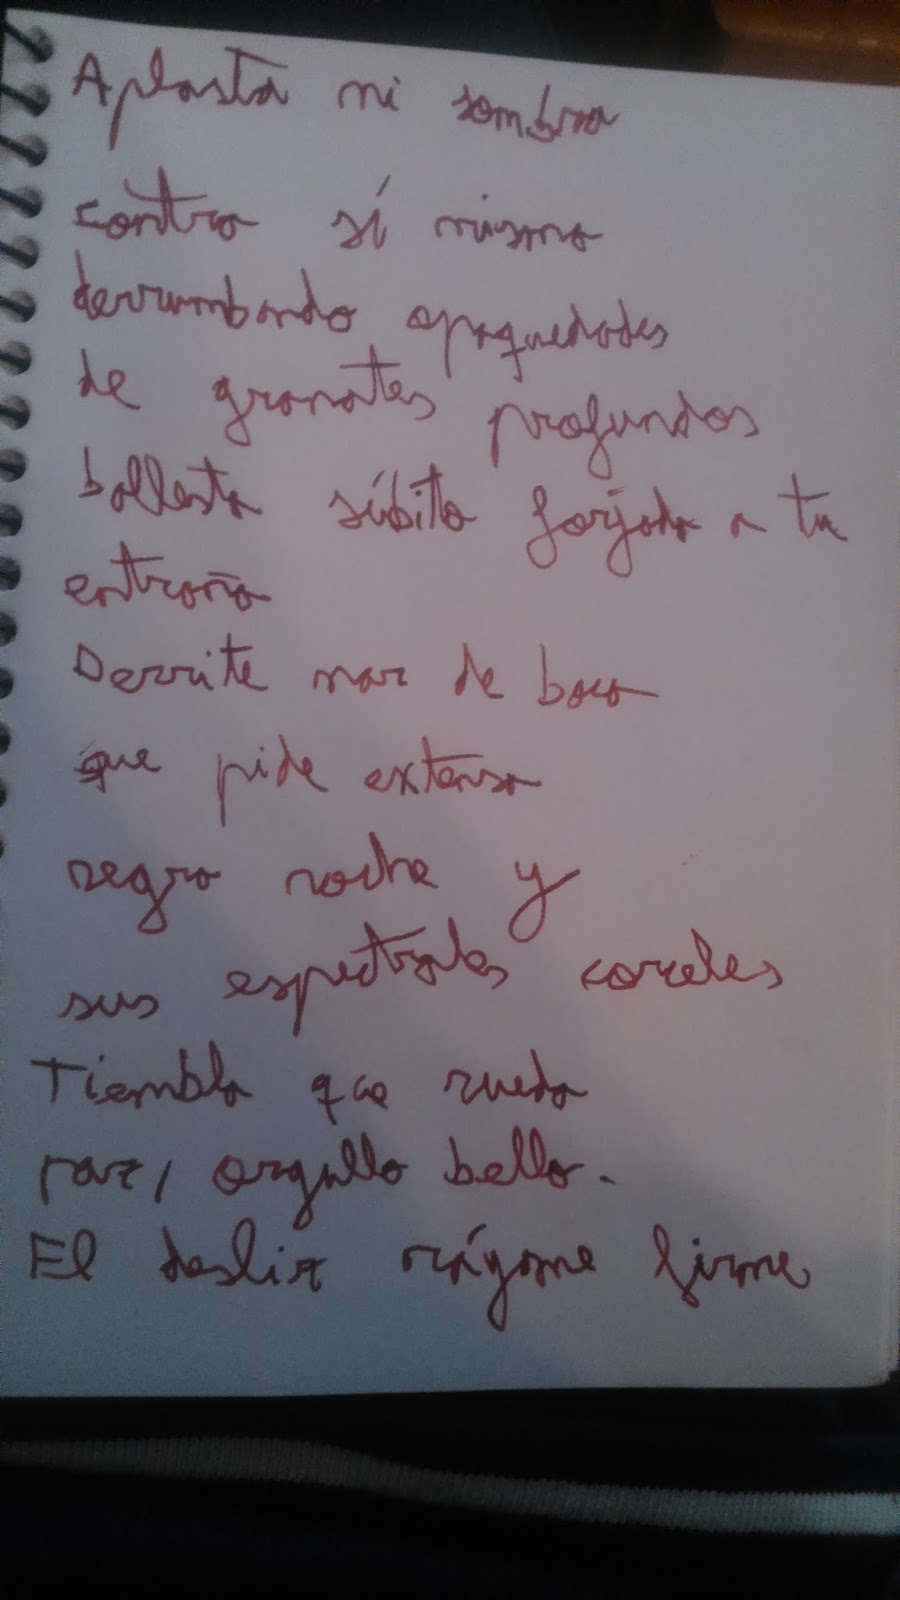 Aplasta mi sombra
contra sí misma
derrumbando opaquedades
de granates profundos
ballesta súbita forjada a tu
entraña
Derrite mar de boca
que pide extensa
negra noche y
sus espectrales corceles
Tiembla que rueda
raz, orgullo bello.
El desliz firme